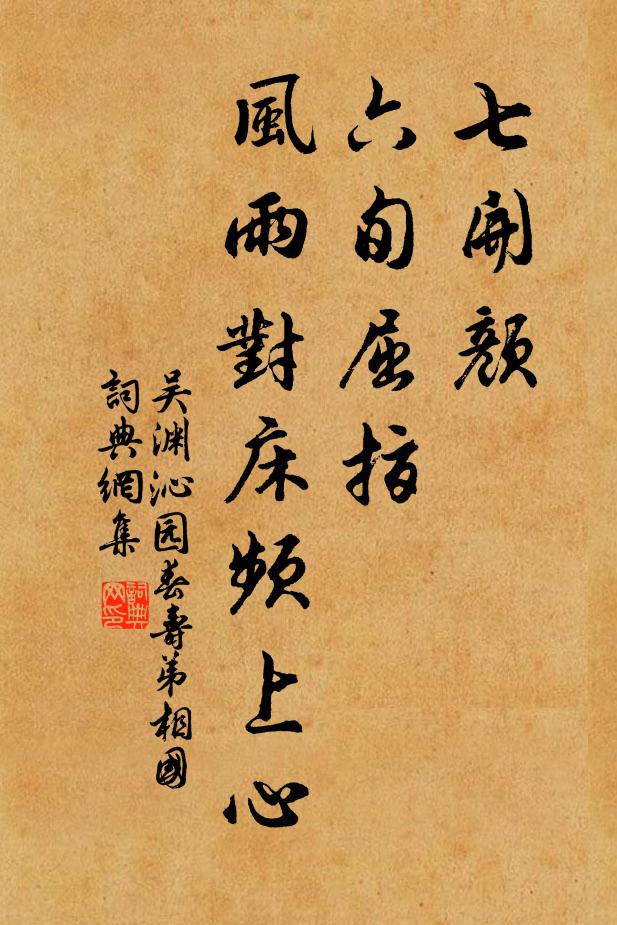 七開顏
六旬屈指
風雨對床頻上心
吴渊沁园春壽弟相國
詞典網集
詞典網印